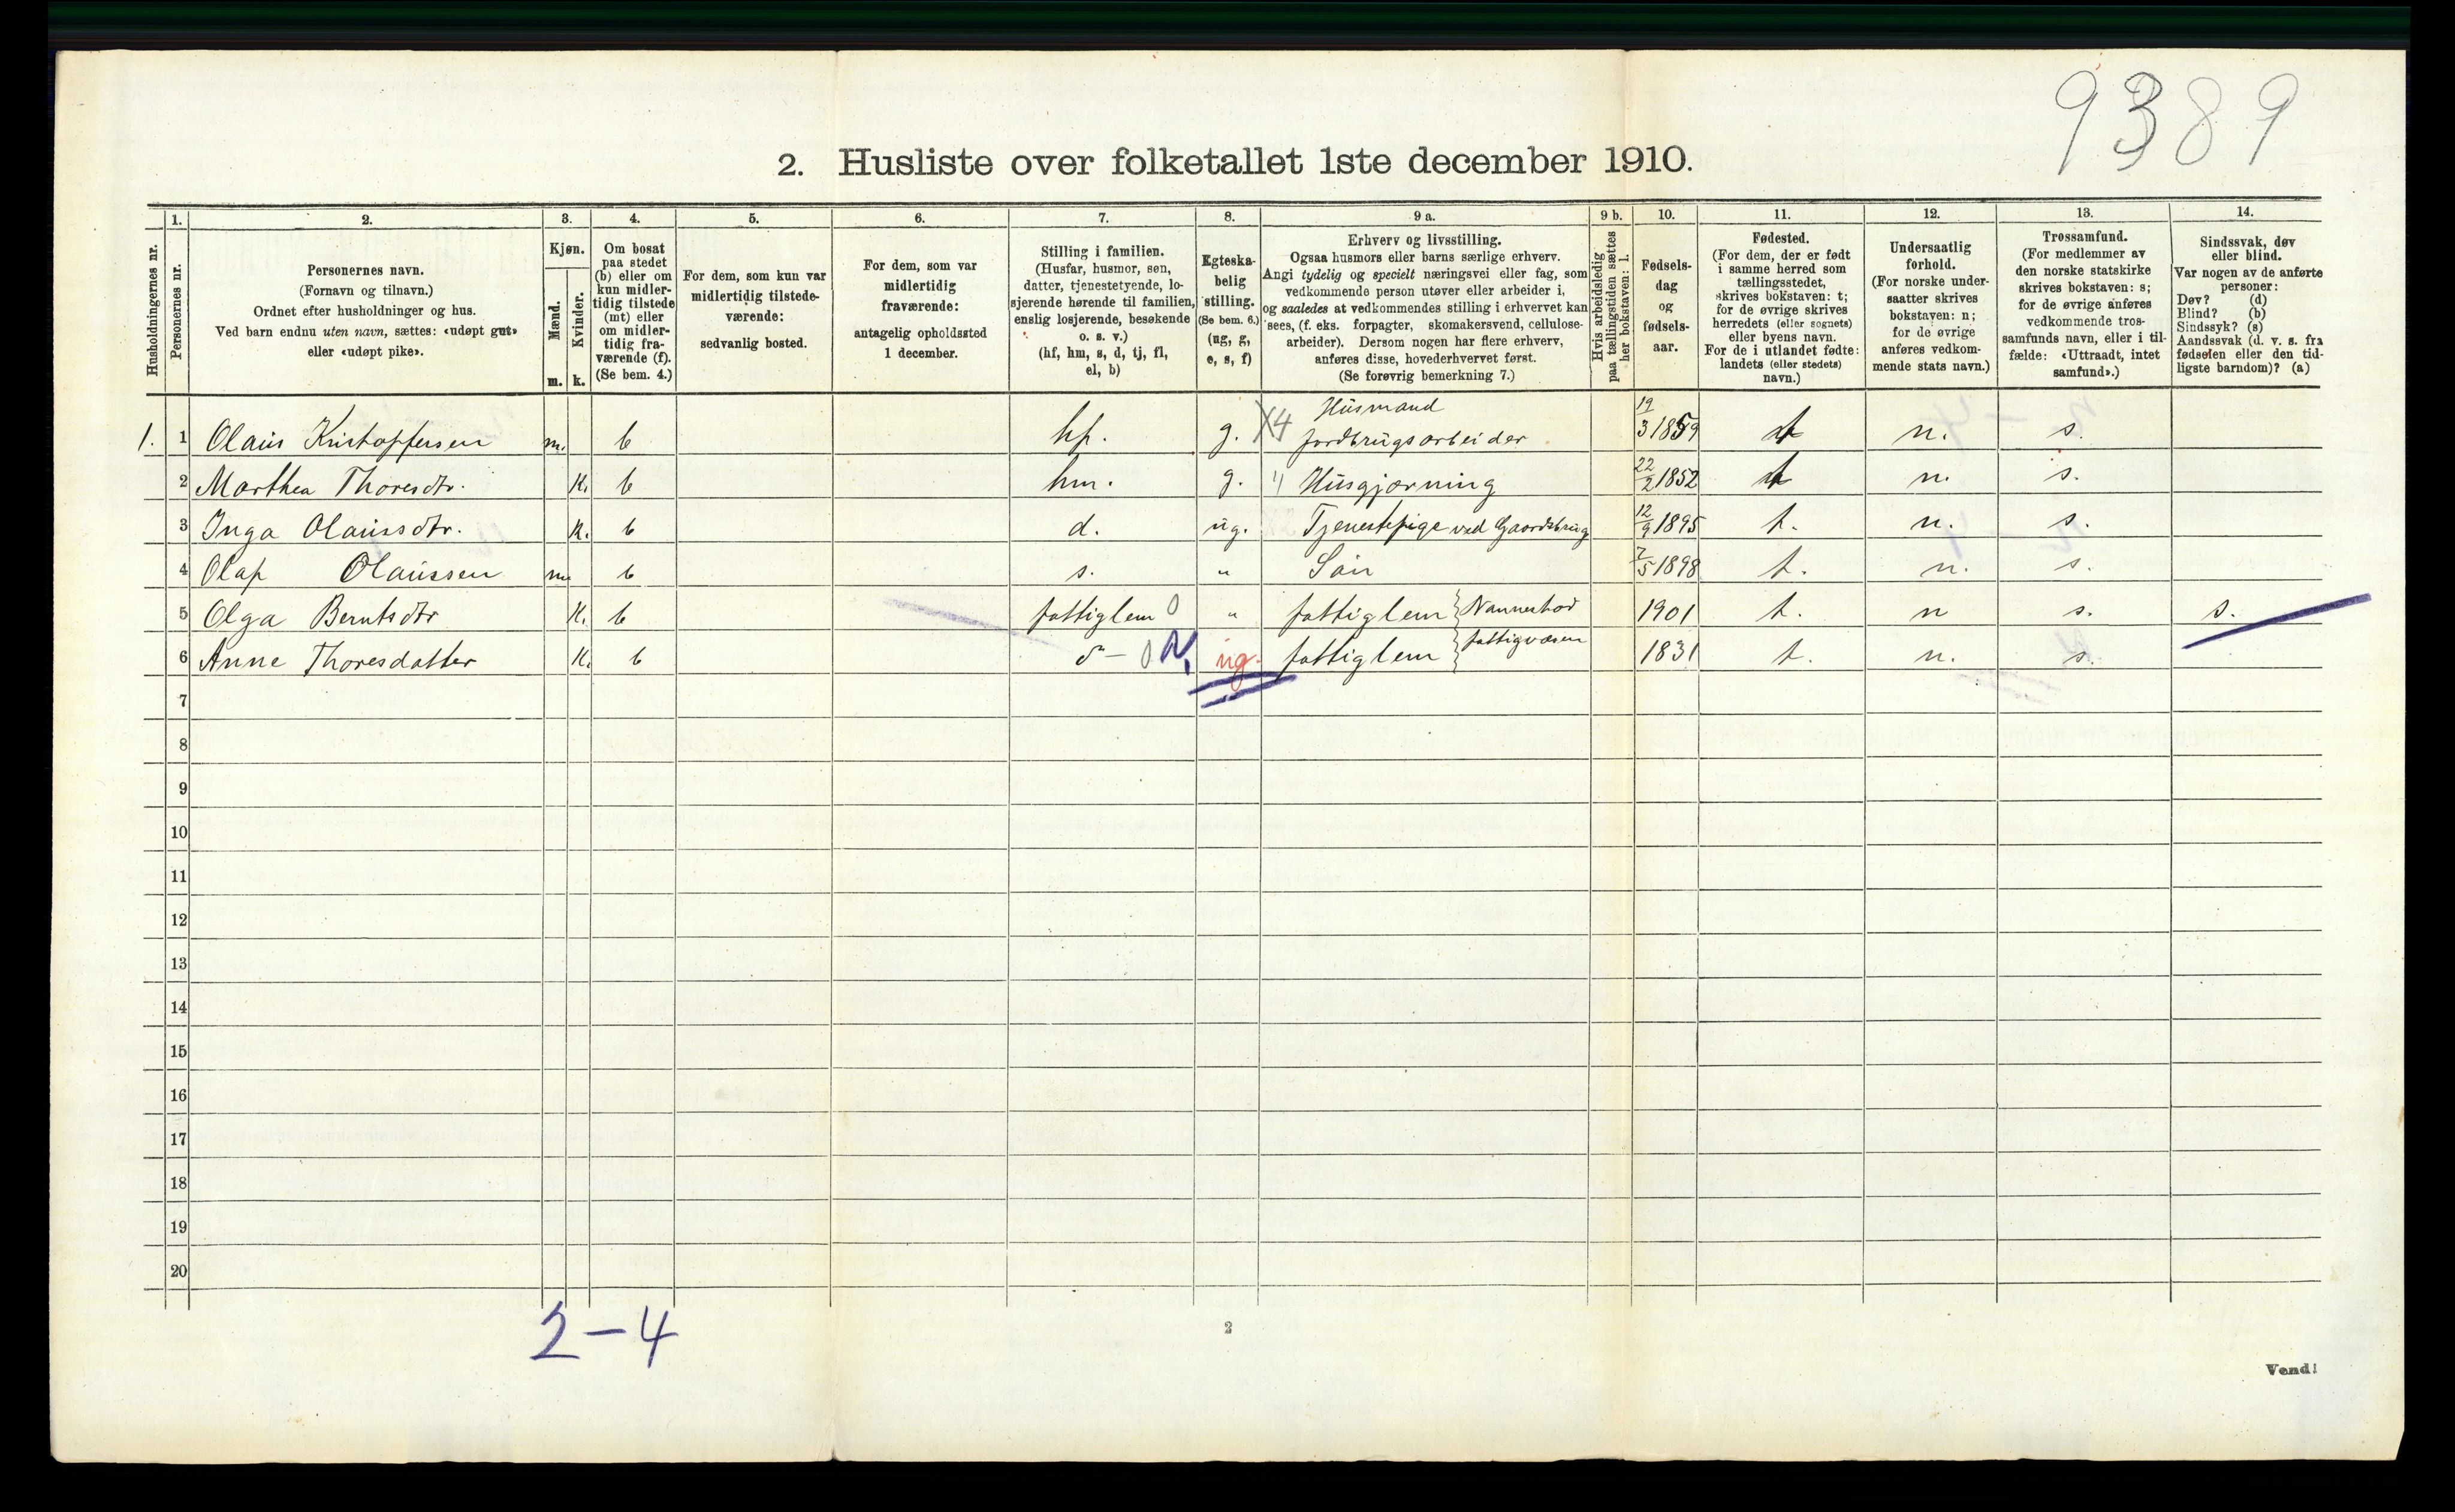 9389
2. Husliste over folketallet 1ste december 1910.
1. 2. 3. 4. 5. 6. 7. 8. 9 a. 9 b. 10. 11. 12. 13. 14.
Husholdningernes nr.
Personernes nr.
Personernes navn.
(Fornavn og tilnavn.)
Ordnet efter husholdninger og hus.
Ved barn endnu uten navn, sættes: «udøpt gut»
eller «udøpt pike».
Kjøn.
Mænd.
Kvinder.
m. k.
Om bosat
paa stedet
(b) eller om
kun midler-
tidig tilstede
(mt) eller
om midler-
tidig fra-
værende (f).
(Se bem. 4.)
For dem, som kun var
midlertidig tilstede-
værende:
sedvanlig bosted.
For dem, som var
midlertidig
fraværende:
antagelig opholdssted
1 december.
Stilling i familien.
(Husfar, husmor, søn,
datter, tjenestetyende, lo-
sjerende hørende til familien,
enslig losjerende, besøkende
o. s. v.)
(hf, hm, s, d, tj, fl,
el, b)
Egteska-
belig
stilling.
(Se bem. 6.)
(ug, g,
e, s, f)
Erhverv og livsstilling.
Ogsaa husmors eller barns særlige erhverv.
Angi tydelig og specielt næringsvei eller fag, som
vedkommende person utøver eller arbeider i,
og saaledes at vedkommendes stilling i erhvervet kan
sees, (f. eks. forpagter, skomakersvend, cellulose-
arbeider). Dersom nogen har flere erhverv,
anføres disse, hovederhvervet først.
(Se forøvrig bemerkning 7.)
Hvis arbeidsledig
paa tællingstiden sættes
her bokstaven: l.
Fødsels-
dag
og
fødsels-
aar.
Fødested.
(For dem, der er født
i samme herred som
tællingsstedet,
skrives bokstaven: t;
for de øvrige skrives
herredets (eller sognets)
eller byens navn.
For de i utlandet fødte:
landets (eller stedets)
navn.)
Undersaatlig
forhold.
(For norske under-
saatter skrives
bokstaven: n;
for de øvrige
anføres vedkom-
mende stats navn.)
Trossamfund.
(For medlemmer av
den norske statskirke
skrives bokstaven: s;
for de øvrige anføres
vedkommende tros-
samfunds navn, eller i til-
fælde: «Uttraadt, intet
samfund».)
Sindssvak, døv
eller blind.
Var nogen av de anførte
personer:
Døv? (d)
Blind? (b)
Sindssyk? (s)
Aandssvak (d. v. s. fra
fødselen eller den tid-
ligste barndom)? (a)
Husmand
1. 1 Olaus Kristoffersen m. b hf. g. X4 jordbrugsarbeider 19/3 1859 t n. s.
2 Marthea Thoresdtr. K. b hm. g. " Husgjærning 22/2 1852 t n. s.
3 Inga Olaussdtr. K. b d. ug. Tjenestepige ved Gaardsbrug 12/9 1895 t. n. s.
4 Olaf Olaussen m. b s. " Søn 7/5 1898 t. n. s.
5 Olga Berntsdtr K. b fattiglem 0 " fattiglem } Nannestad 1901 t. n s. s.
6 Anne Thoresdatter K. b d° - 0 N. ug. fattiglem } fattigvæsen 1831 t. n. s.
7
8
9
10
11
12
13
14
15
16
17
18
19
20
2-4
2
Vend!